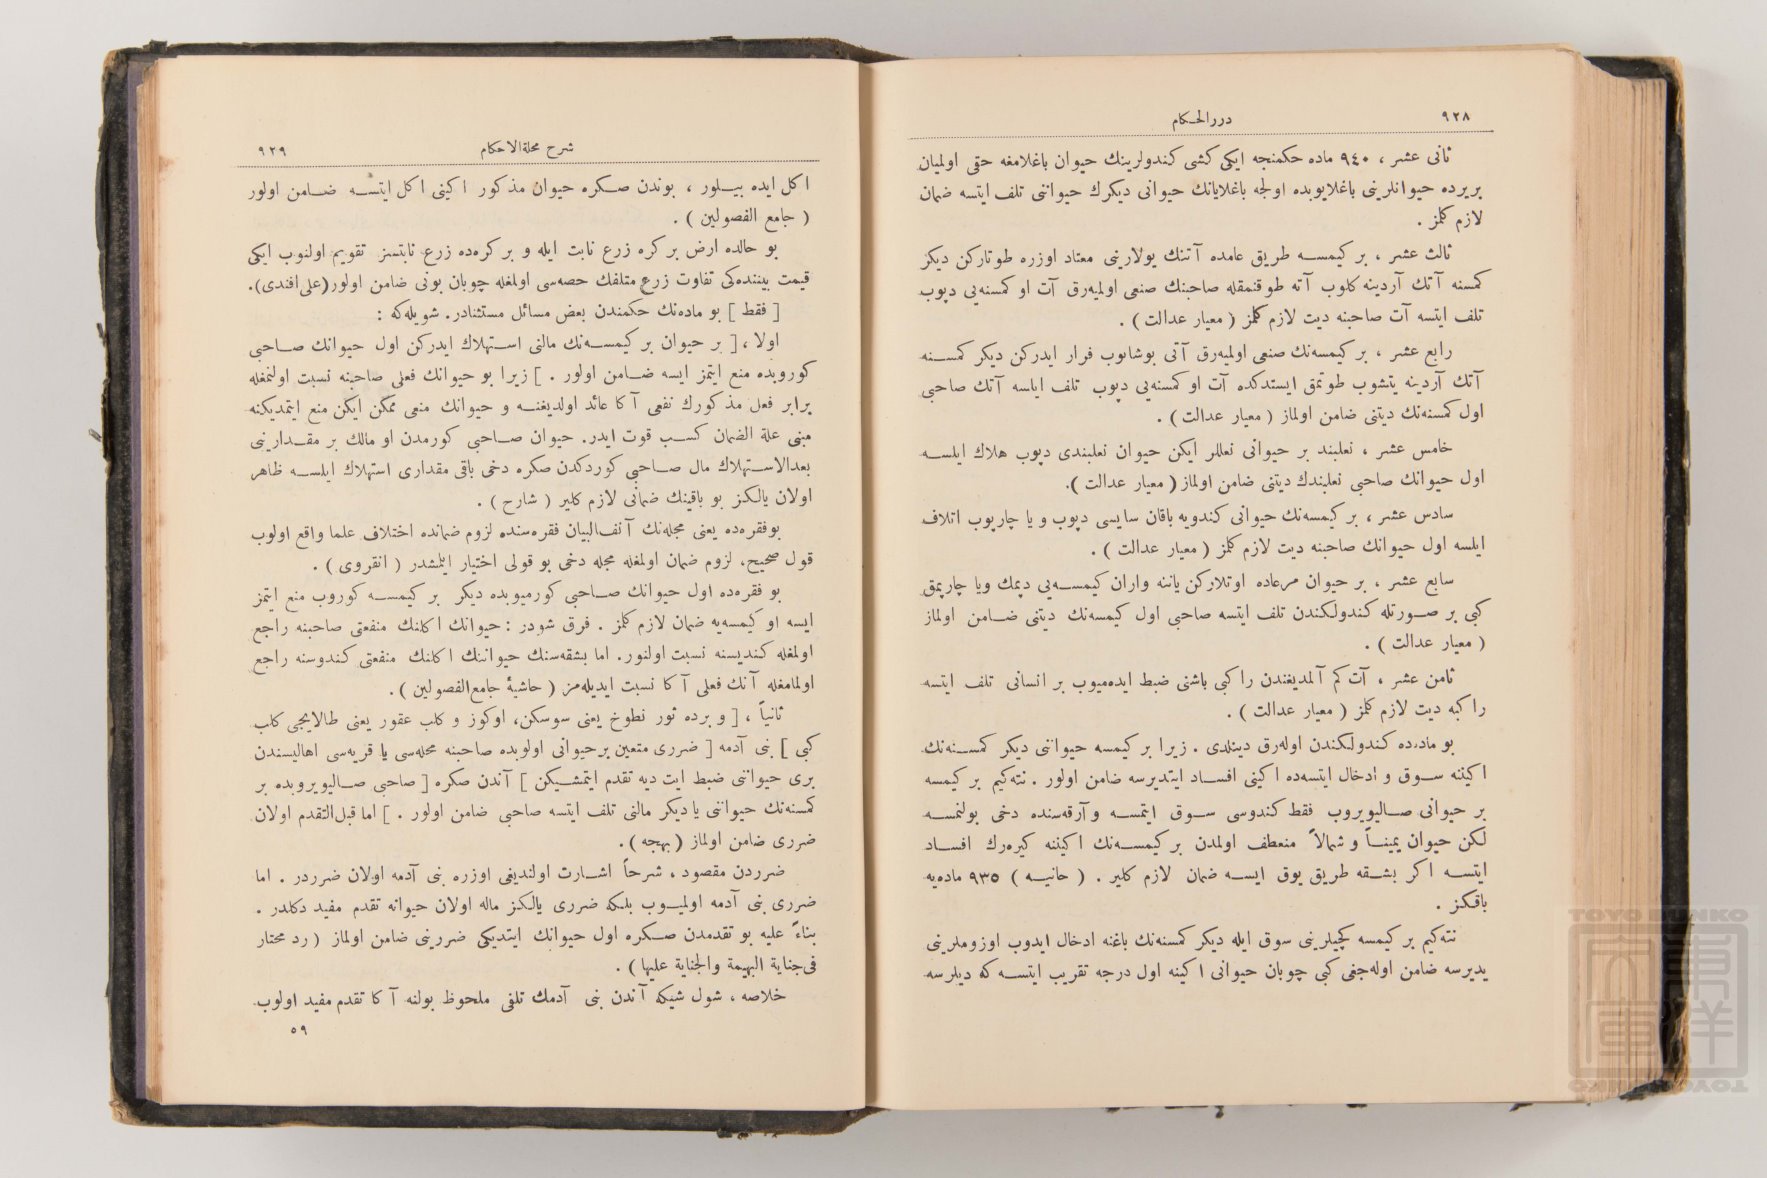 ٩٢٨
دررالحكام
ثانی عشر ، ٩٤٠ ماده حكمنجه ایكی كشی كندولرینك حیوان باغلامغه حقی اولمیان
بریرده حیوانلرینی باغلایوبده اولجه باغلایانك حیوانی دیكرك حیواننی تلف ایتسه ضمان
لازم كلمز .
ثالث عشر ، بر كیمسه طریق عامده آتنك یولارینی معتاد اوزره طوتاركن دیكر
كمسنه آتك آردینه كلوب آته طوقنمقله صاحبنك صنعی اولمیه‌رق آت او كمسنه‌یی دپوب
تلف ایتسه آت صاحبنه دیت لازم كلمز ( معیار عدالت ) .
رابع عشر ، بر كیمسه‌نك صنعی اولمیه‌رق آتی بوشانوب فرار ایدركن دیكر كمسنه
آتك آردینه یتشوب طوتمق ایستدكده آت او كمسنه‌یی دپوب تلف ایلسه آتك صاحبی
اول كمسنه‌نك دیتنی ضامن اولماز ( معیار عدالت ) .
خامس عشر ، نعلبند بر حیوانی نعللر ایكن حیوان نعلبندی دپوب هلاك ایلسه
اول حیوانك صاحبی نعلبندك دیتنی ضامن اولماز ( معیار عدالت ).
سادس عشر ، بر كیمسه‌نك حیوانی كندویه باقان سایسی دپوب و یا چارپوب اتلاف
ایلسه اول حیوانك صاحبنه دیت لازم كلمز ( معیار عدالت ) .
سابع عشر ، بر حیوان مرعاده اوتلاركن یاننه واران كیمسه‌یی دپمك ویا چارپمق
كبی بر صورتله كندولكندن تلف ایتسه صاحبی اول كیمسه‌نك دیتنی ضامن اولماز
( معیار عدالت ) .
ثامن عشر ، آت كم آلمدیغندن راكبی باشنی ضبط ایده‌میوب بر انسانی تلف ایتسه
راكبه دیت لازم كلمز ( معیار عدالت ) .
بو ماده‌ده كندولكندن اوله‌رق دینلدی . زیرا بر كیمسه حیواننی دیكر كمسنه‌نك
اكیننه سوق و ادخال ایتسه‌ده اكینی افساد ایتدیرسه ضامن اولور . نته‌كیم بر كیمسه
بر حیوانی صالیویروب فقط كندوسی سوق ایتمسه و آرقه‌سنده دخی بولنمسه
لكن حیوان یمیناً و شمالاً منعطف اولمدن بر كیمسه‌نك اكیننه كیره‌رك افساد
ایتسه اكر بشقه طریق یوق ایسه ضمان لازم كلیر . ( خانیه ) ٩٣٥ ماده‌یه
باقكز .
نته‌كیم بر كیمسه كچیلرینی سوق ایله دیكر كمسنه‌نك باغنه ادخال ایدوب اوزوملرینی
یدیرسه ضامن اوله‌جغی كبی چوبان حیوانی اكینه اول درجه تقریب ایتسه كه دیلرسه
شرح مجلةالاحكام
٩٢٩
اكل ایده بیلور ، بوندن صكره حیوان مذكور اكینی اكل ایتسه ضامن اولور
( جامع الفصولین ) .
بو حالده ارض بر كره زرع نابت ایله و بر كره‌ده زرع نابتسز تقویم اولنوب ایكی
قیمت بیننده‌كی تفاوت زرع متلفك حصه‌سی اولمغله چوبان بونی ضامن اولور(علی افندی).
[ فقط ] بو ماده‌نك حكمندن بعض مسائل مستثنادر. شویله‌كه :
اولا ، [ بر حیوان بر كیمسه‌نك مالنی استهلاك ایدركن اول حیوانك صاحبی
كوروبده منع ایتمز ایسه ضامن اولور . ] زیرا بو حیوانك فعلی صاحبنه نسبت اولنمغله
برابر فعل مذكورك نفعی آكا عائد اولدیغنه و حیوانك منعی ممكن ایكن منع ایتمدیكنه
مبنی علة الضمان كسب قوت ایدر. حیوان صاحبی كورمدن او مالك بر مقدارینی
بعدالاستهلاك مال صاحبی كوردكدن صكره دخی باقی مقداری استهلاك ایلسه ظاهر
اولان یالكز بو باقینك ضمانی لازم كلیر ( شارح ) .
بوفقره‌ده یعنی مجله‌نك آنف‌البیان فقره‌سنده لزوم ضمانده اختلاف علما واقع اولوب
قول صحیح، لزوم ضمان اولمغله مجله دخی بو قولی اختیار ایلمشدر ( انقروی ) .
بو فقره‌ده اول حیوانك صاحبی كورمیوبده دیكر بر كیمسه كوروب منع ایتمز
ایسه او كیمسه‌یه ضمان لازم كلمز . فرق شودر : حیوانك اكلنك منفعتی صاحبنه راجع
اولمغله كندیسنه نسبت اولنور. اما بشقه‌سنك حیواننك اكلنك منفعتی كندوسنه راجع
اولمامغله آنك فعلی آكا نسبت ایدیله‌مز ( حاشیهٔ جامع‌الفصولین ) .
ثانیاً ، [ و برده ثور نطوخ یعنی سوسكن، اوكوز و كلب عقور یعنی طالایجی كلب
كبی ] بنی آدمه [ ضرری متعین برحیوانی اولوبده صاحبنه محله‌سی یا قریه‌سی اهالیسندن
بری حیواننی ضبط ایت دیه تقدم ایتمشیكن ] آندن صكره [ صاحبی صالیویروبده بر
كمسنه‌نك حیواننی یا دیكر مالنی تلف ایتسه صاحبی ضامن اولور . ] اما قبل‌التقدم اولان
ضرری ضامن اولماز ( بهجه ) .
ضرردن مقصود ، شرحاً اشارت اولندیغی اوزره بنی آدمه اولان ضرردر . اما
ضرری بنی آدمه اولمیوب بلكه ضرری یالكز ماله اولان حیوانه تقدم مفید دكلدر .
بناءً علیه بو تقدمدن صكره اول حیوانك ایتدیكی ضررینی ضامن اولماز ( رد محتار
فی‌جنایة البهیمة والجنایة علیها ) .
خلاصه ، شول شیكه آندن بنی آدمك تلفی ملحوظ بولنه آكا تقدم مفید اولوب
٥٩
TOYO BUNKO
東洋文庫